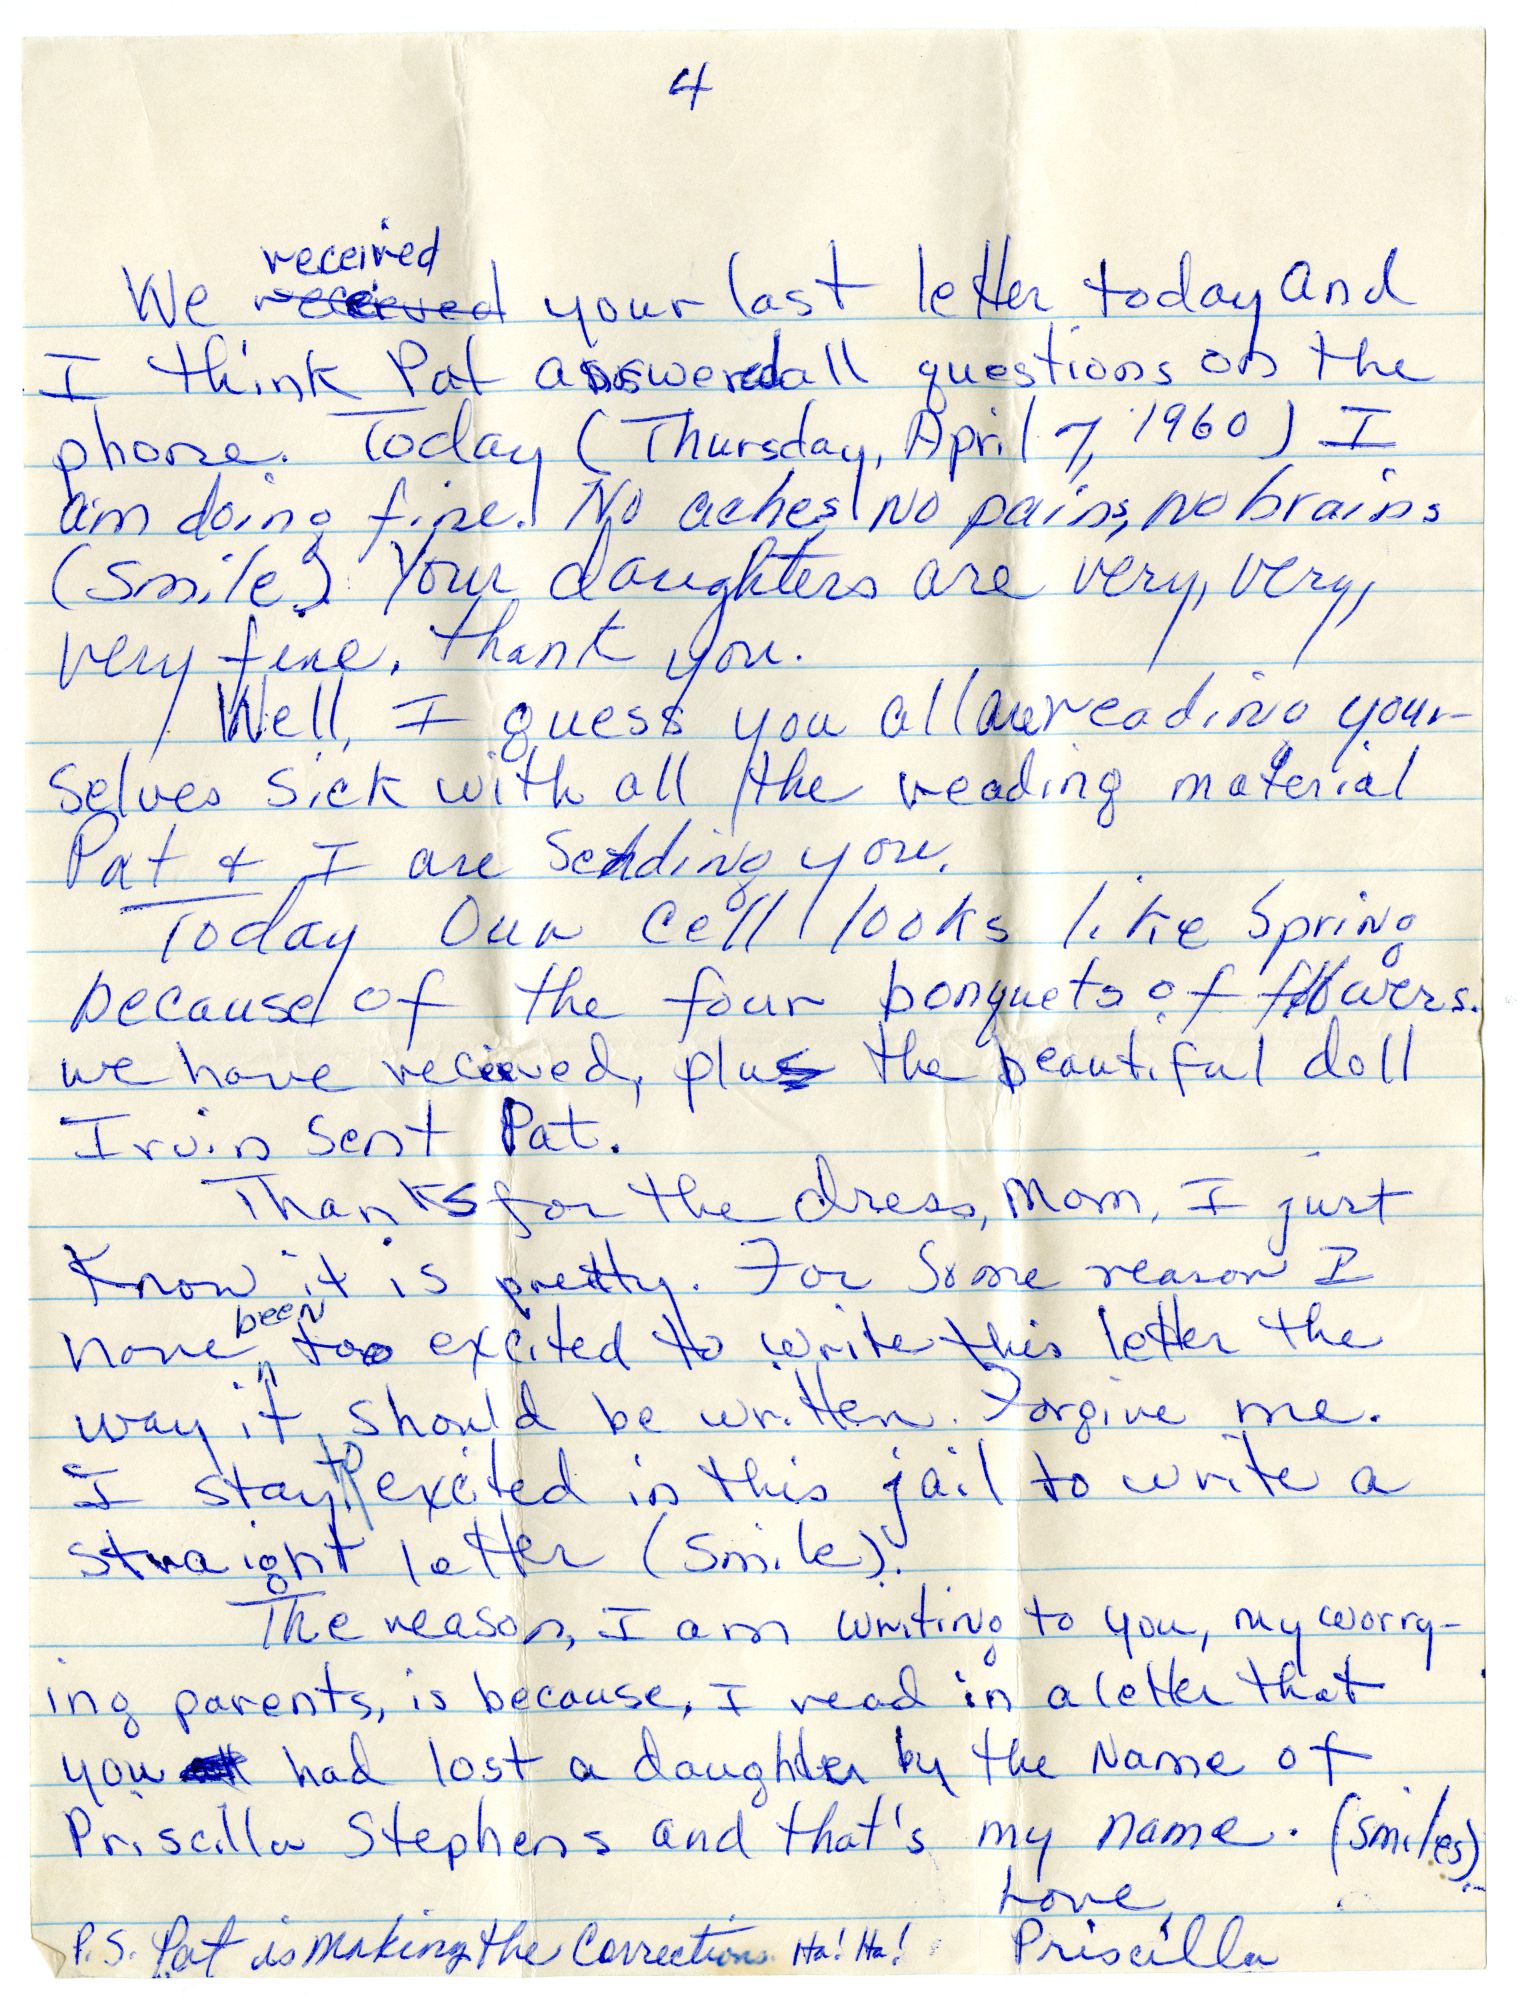 4
received
We recieved your last letter today and
I think Pat answered all questions on the
phone. Today (Thursday, April 7, 1960) I
am doing fine. No aches, no pains, no brains
(Smile). Your daughters are very, very,
very fine, thank you.
Well, I guess you all are reading your-
selves sick with all the reading material
Pat & I are sending you.
Today our cell looks like Spring
because of the four bouquets of flowers.
we have recieved, plus the beautiful doll
Irvin sent Pat.
Thanks for the dress, Mom, I just
know it is pretty. For some reason I
have been too excited to write this letter the
way it should be written. Forgive me.
I stay to excited in this jail to write a
straight letter (smile).
The reason, I am writing to you, my worry-
ing parents, is because, I read in a letter that
you had lost a daughter by the name of
Priscilla Stephens and that's my name. (smiles)
Love,
Priscilla
P.S. Pat is making the corrections Ha! Ha!